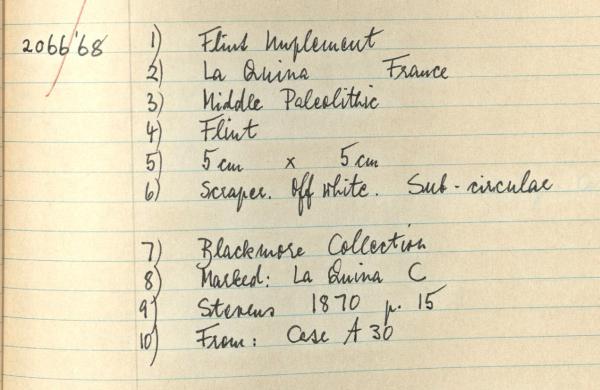 2066'68 1) Flint Implement
2) La Quina France
3) Middle Paleolithic
4) Flint
5) 5 cm x 5 cm
6) Scraper. Off white. Sub-circular
7) Blackmore Collection
8) Marked: La Quina C
9) Stevens 1870 p. 15
10) From: Case A 30